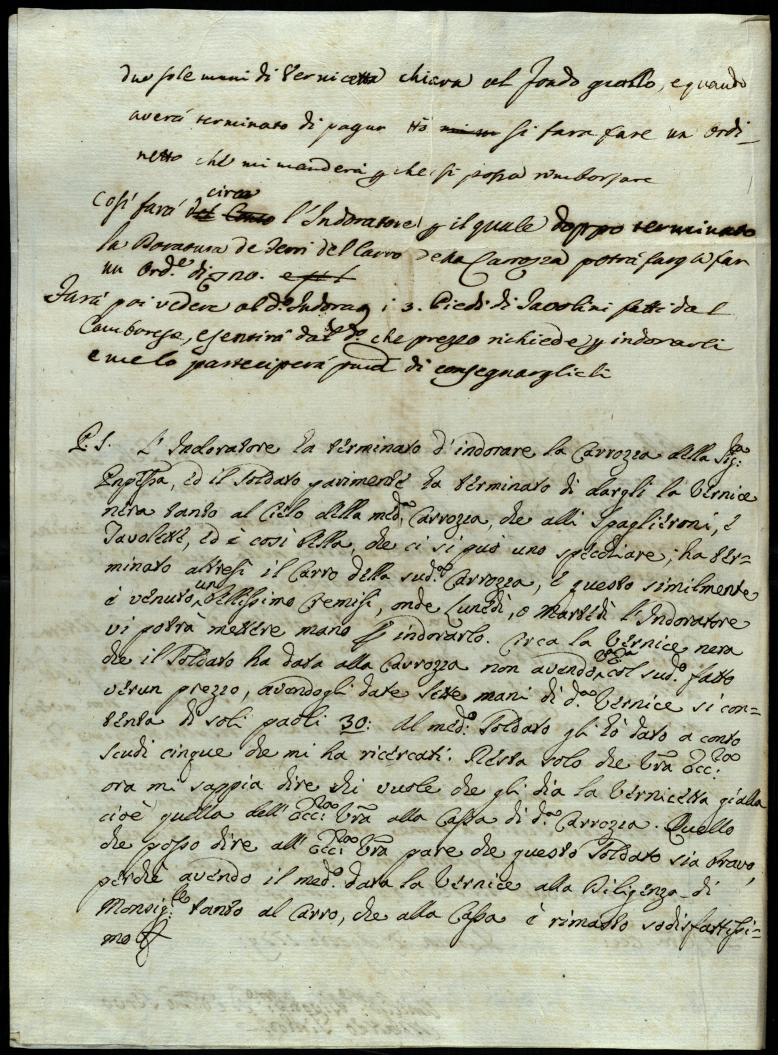 due sole mani di Vernicetta chiara al fondo giallo, e quando
averà terminato di pagar tto si farà fare un ordi-
netto che mi manderà p che si possa rimborsare
Così farà circa l'Indoratore, p il quale doppo terminato
la Doratura de ferri del Carro della Carrozza potrà farg a far
un Ord.e di gno.
Farà poi vedere al d.o Indorag i 3. Piedi di Tavolini fatti dal
Camborese, e sentirà dal d.o che prezzo richiede p indorarli
e me lo parteciperà pma di consegnarglieli
P.S. L'Indoratore ha terminato d'indorare la Carrozza della Sig.ra
Enpessa, ed il Soldato parimente ha terminato di dargli la Vernice
nera tanto al Cielo della med.a Carrozza, che alli Spaglieroni, e
Tavolette, ed è così bella, che ci si può uno specchiare; ha ter-
minato altresì il Carro della sud.a Carrozza, e questo similmente
è venuto un bellissimo Cremisi, onde Lunedì, o Martedì l'Indoratore
vi potrà mettere mano p indorarlo. Circa la Vernice nera
che il Soldato ha data alla Carrozza non avendo col sud.o fatto
verun prezzo, avendogli date sette mani di d.a Vernice si con-
tenta di soli paoli 30: Al med.o Soldato gli hò dato a conto
scudi cinque che mi ha ricercati. Resta solo che Vra Ecc:
ora mi sappia dire chi vuole che gli dia la Vernicetta gialla
cioè quella dell'Ecc: Vra alla Cassa di d.a Carrozza. Quello
che posso dire all'Ecc: Vra pare che questo Soldato sia bravo,
perche avendo il med.o data la Vernice alla Diligenza di
Monsig.re tanto al Carro, che alla Cassa è rimasto sodisfattissi-
mo